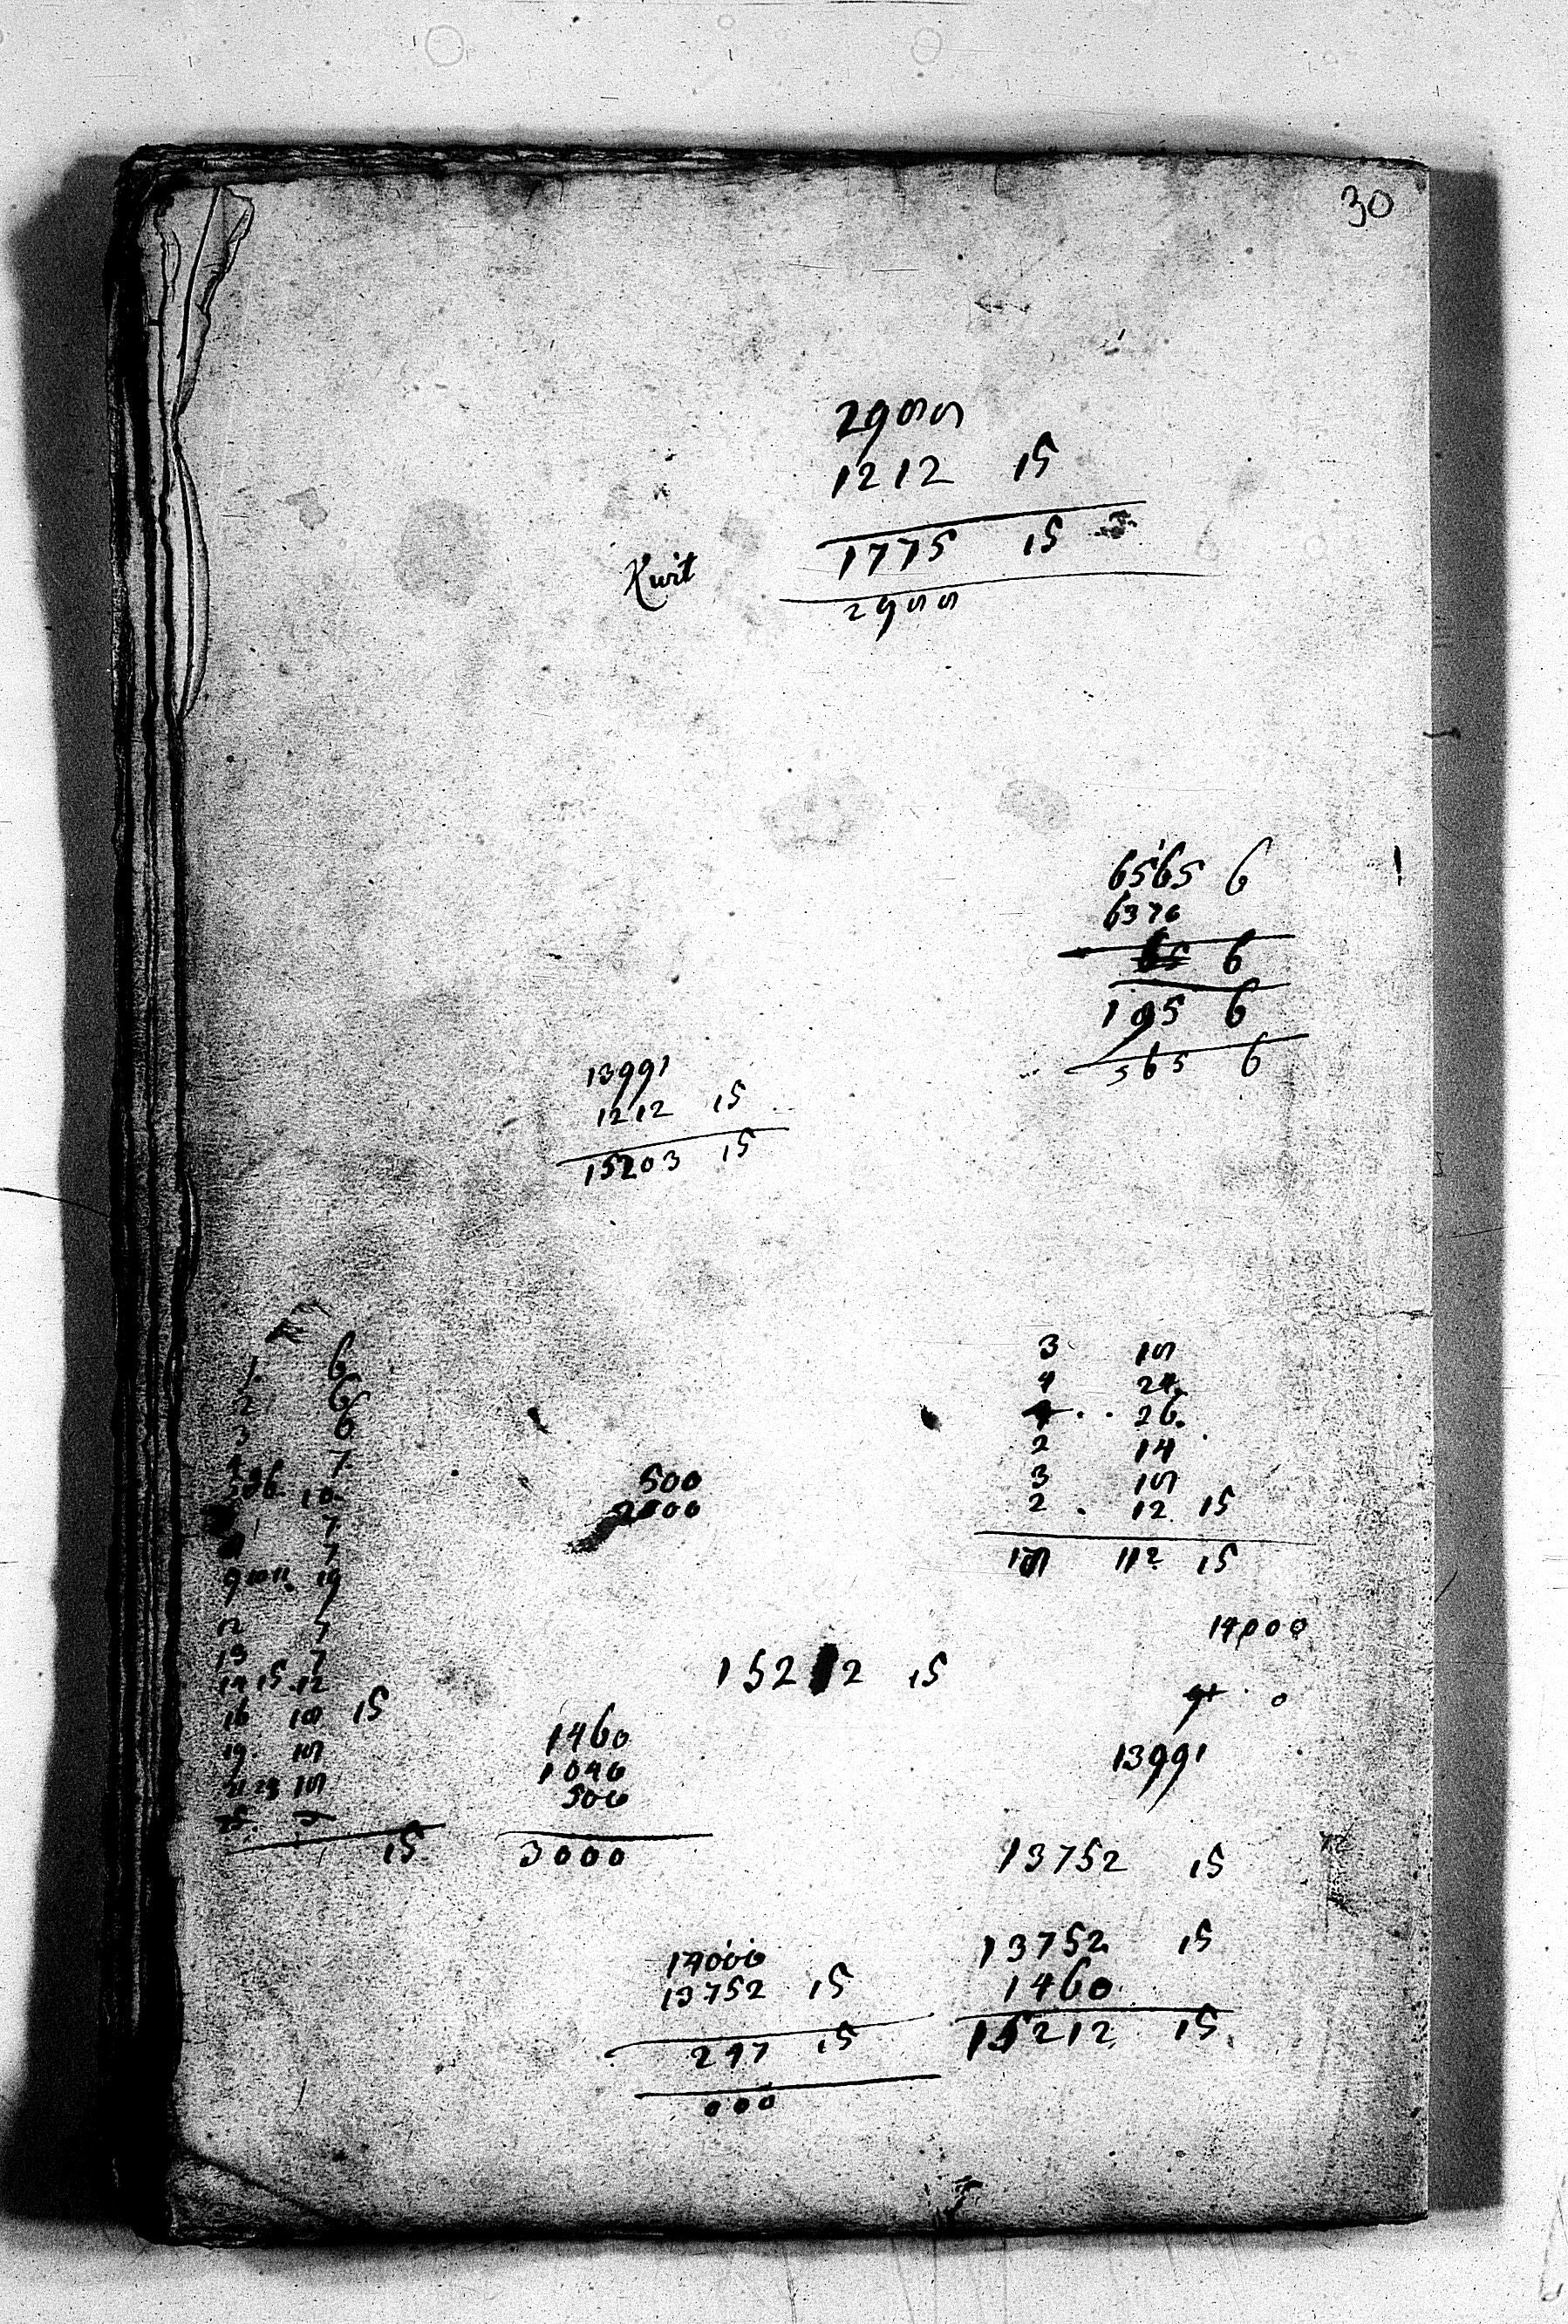 30
2900
1212 15
1775 15
Kwit
2900
6565 6
6376
65 6
195 6
565 6
13991
1212 15
15203 15
1. 6
2 6
3 6
7.
5 6. 10.
7
7
9 10 11. 19
12 7
13 7
14 15. 12
16 10 15
19. 10
21 23 10
15
500
2000
3 10
4 24.
26.
2 14
3 10
2 . 12 15
112 15
14000
152 2 15
91 . 0
13991
1460
1040
500
3000
13752 15
14000
13752 15
247 15
000
13752 15
1460
15212 15